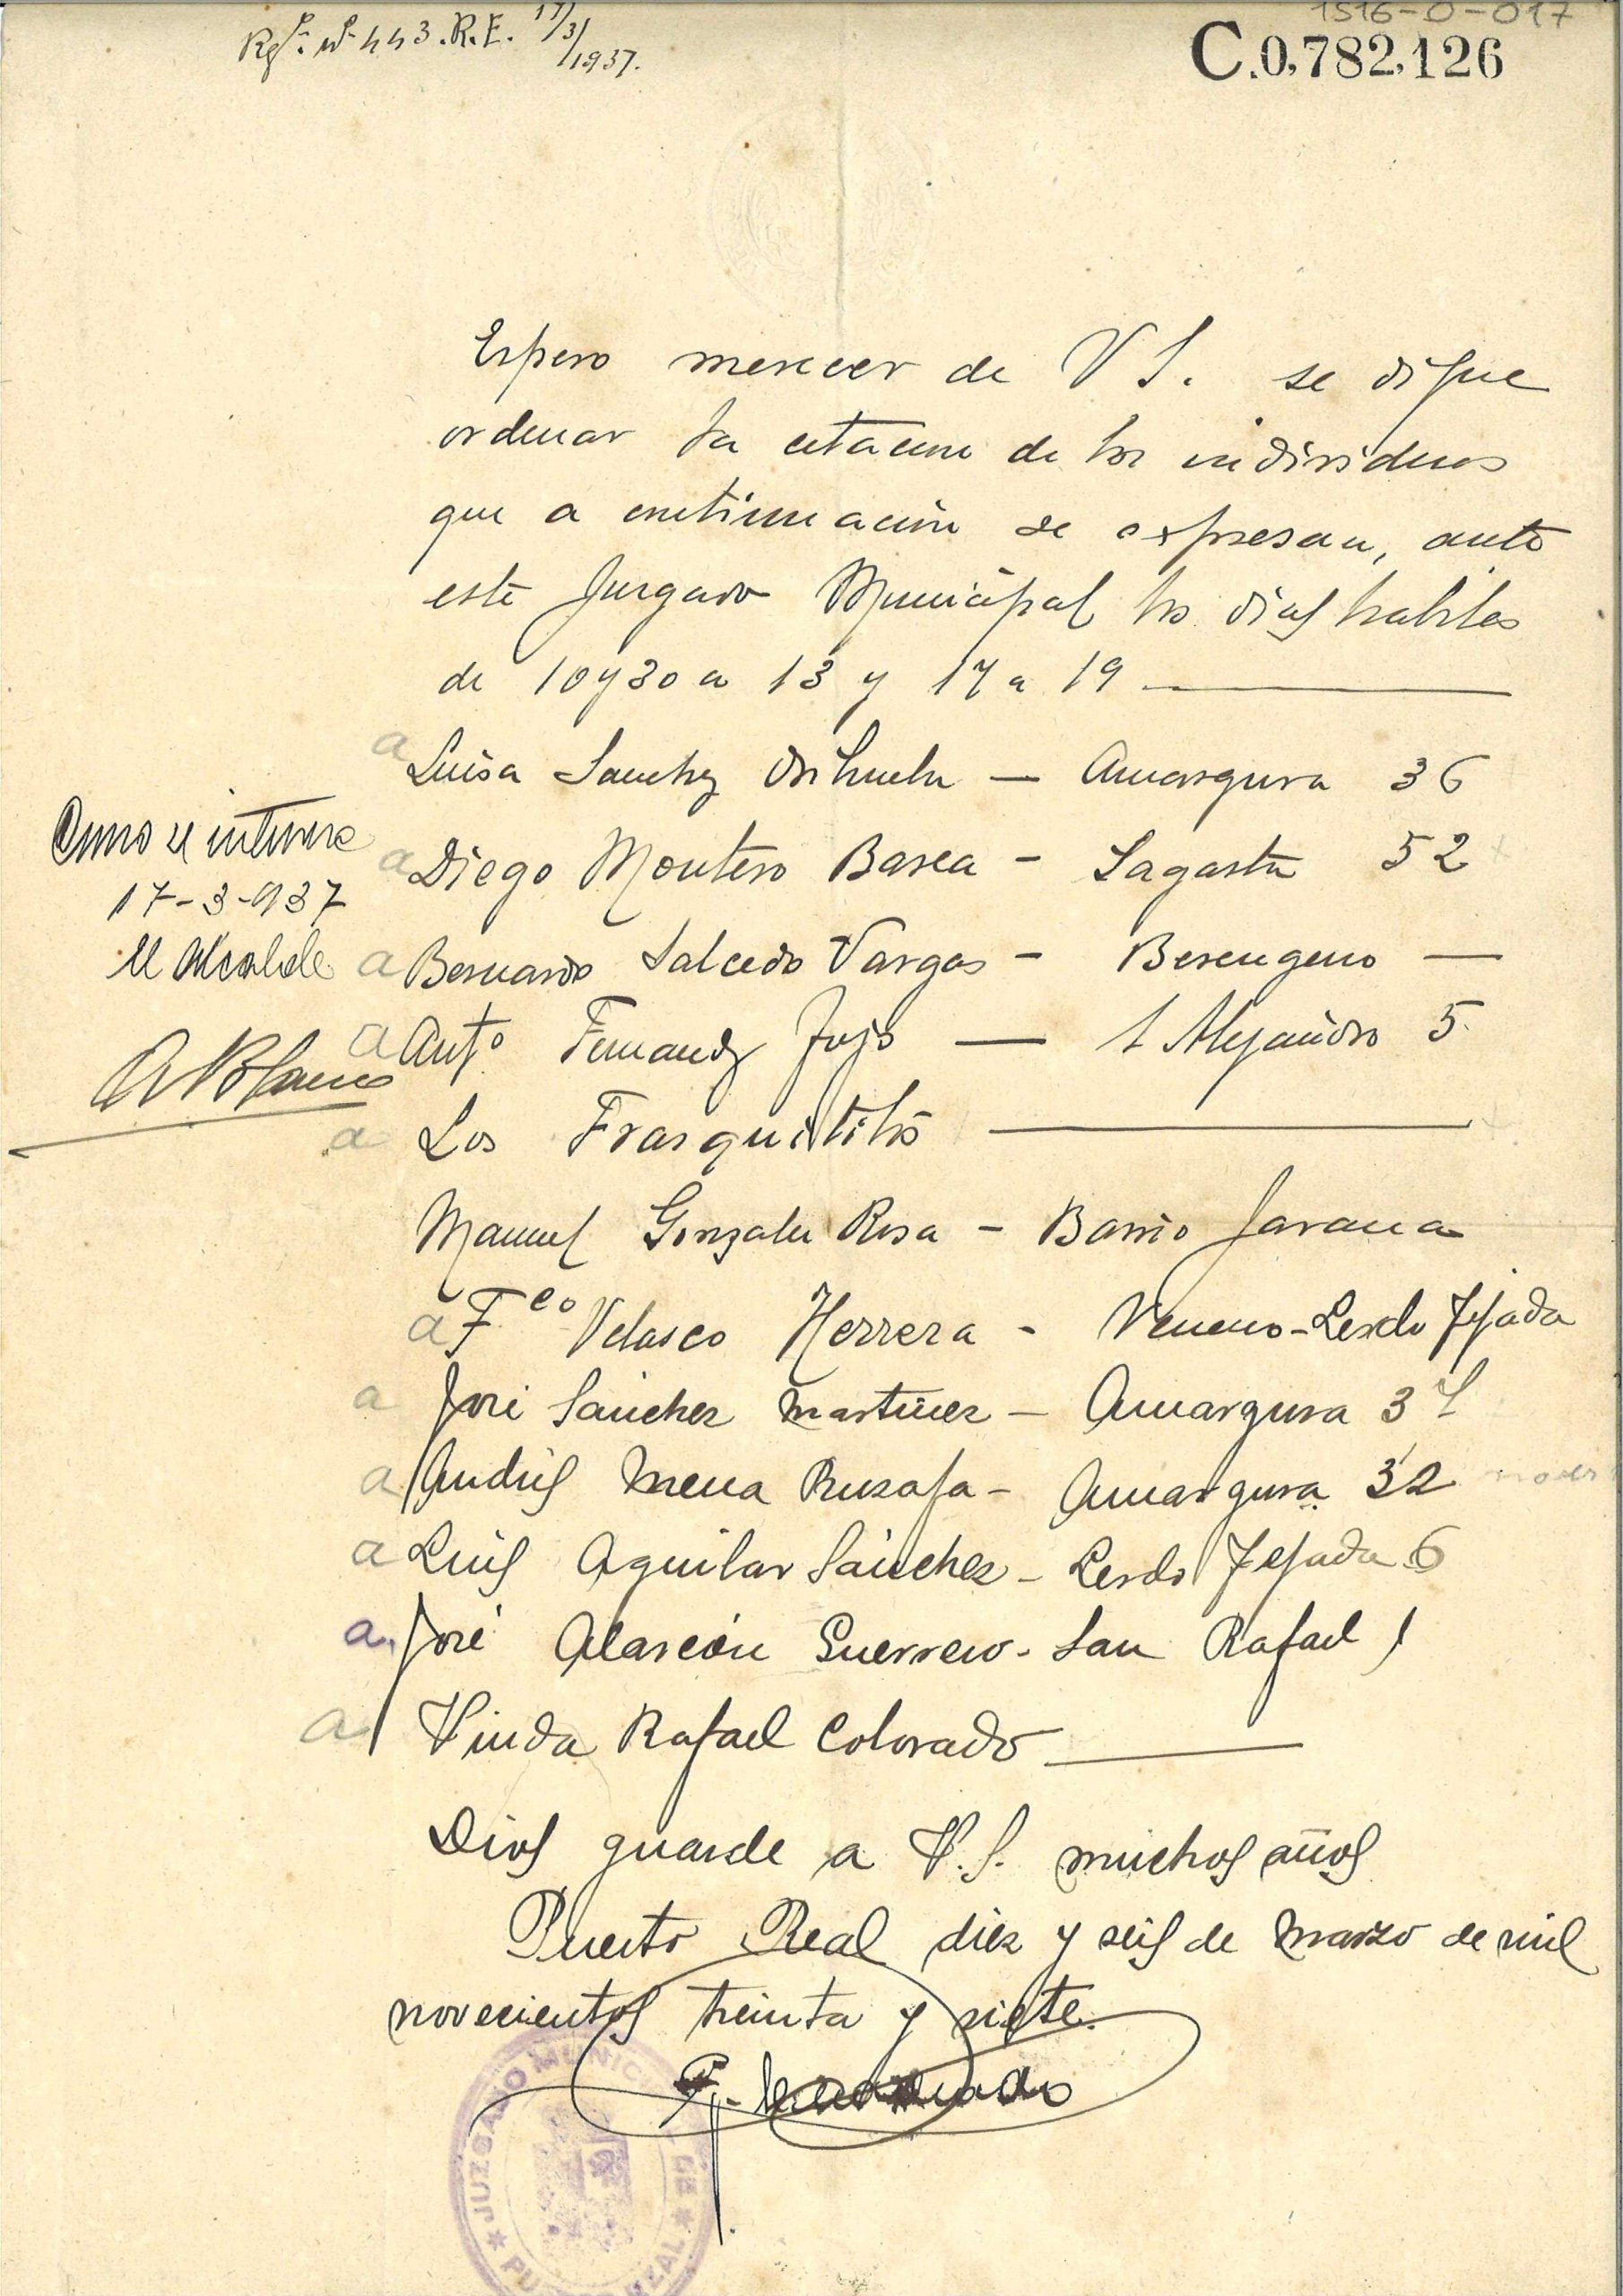 1516-0-017
Rgº. nº 443. R.E. 17/3/1937.
C.0,782,126
Espero merecer de V S. se digne
ordenar la citacion de los individuos
que a continuación se expresan, ante
este Juzgado Municipal los dias habiles
de 10 y 30 a 13 y 17 a 19
a Luisa Sanchez Orihuela - Amargura 36
a Diego Montero Barea - Sagasta 52
a Bernardo Salcedo Vargas - Berengeno -
a Antº Fernandz - S Alejandro 5
a Los Frasquititos
Manuel Gonzalez Rosa - Barrio Jarana
a Fco Velasco Herrera - Veneno - Lerdo Tejada
a José Sánchez Martinez - Amargura
a Andrés Mena Ruzafa - Amargura 32
a Luis Aguilar Sánchez - Lerdo Tejada 6
a José Alarcón Guerrero - San Rafael 1
a Viuda Rafael Colorado
Como se interesa
17-3-937
El Alcalde
Dios guarde a V.S. muchos años
Puerto Real diez y seis de Marzo de mil
novecientos treinta y siete.
JUZGADO MUNICIPAL DE
PUERTO REAL